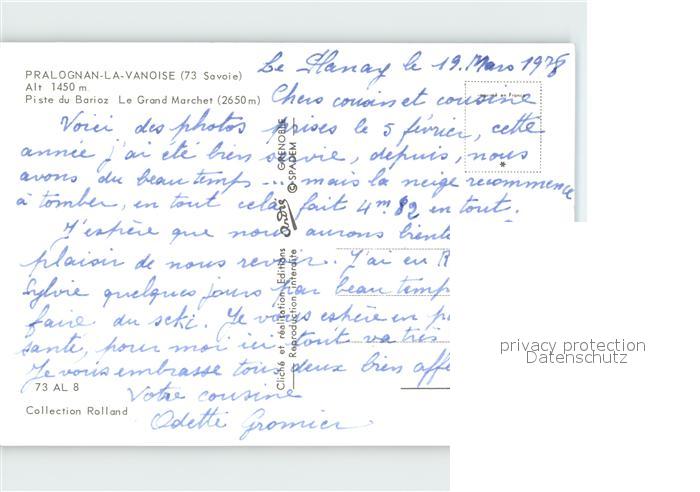 PRALOGNAN-LA-VANOISE (73 Savoie)
Alt 1450 m.
Piste du Barioz Le Grand Marchet (2650 m)
Le Planay le 19. Mars 1978
Chers cousin et cousine
Voici des photos prises le 5 février, cette
année j'ai été bien suivie, depuis, nous
avons du beau temps ... mais la neige recommence
à tomber, en tout cela fait 4m 82 en tout.
J'espère que nous aurons bient
plaisir de nous revoir. J'ai eu
Sylvie quelques jours par beau temp
faire du ski. Je vous espère en
santé, pour moi ici tout va très
Je vous embrasse tous deux bien affe
Votre cousine
Odette Gromier
73 AL 8
Collection Rolland
Cliché et réalisation Editions André GRENOBLE
Reproduction interdite © SPADEM
privacy protection
Datenschutz